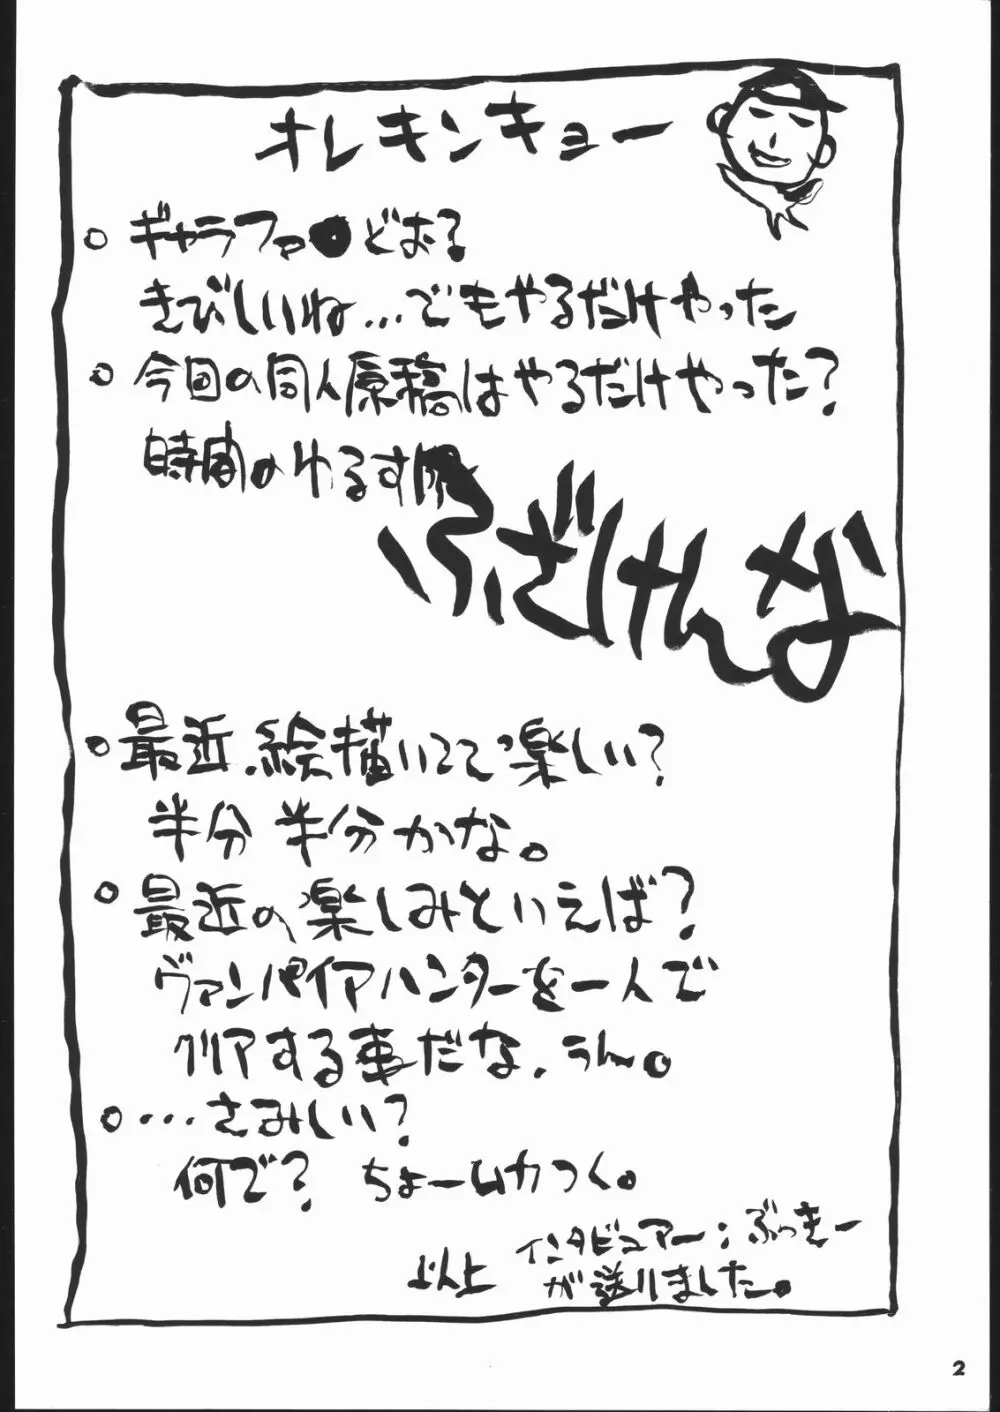 オレキンキョー
○ギャラファ●どお?
きびしいね…でもやるだけやった
○今回の同人原稿はやるだけやった?
時間のゆるす限
ふざけんな
○最近、絵描いてて楽しい?
半分半分かな。
○最近の楽しみといえば?
ヴァンパイアハンターを一人で
クリアする事だな、うん。
○…さみしい?
何で? ちょームカつく。
以上 インタビュアー:ぶっきー
が送りました。
2